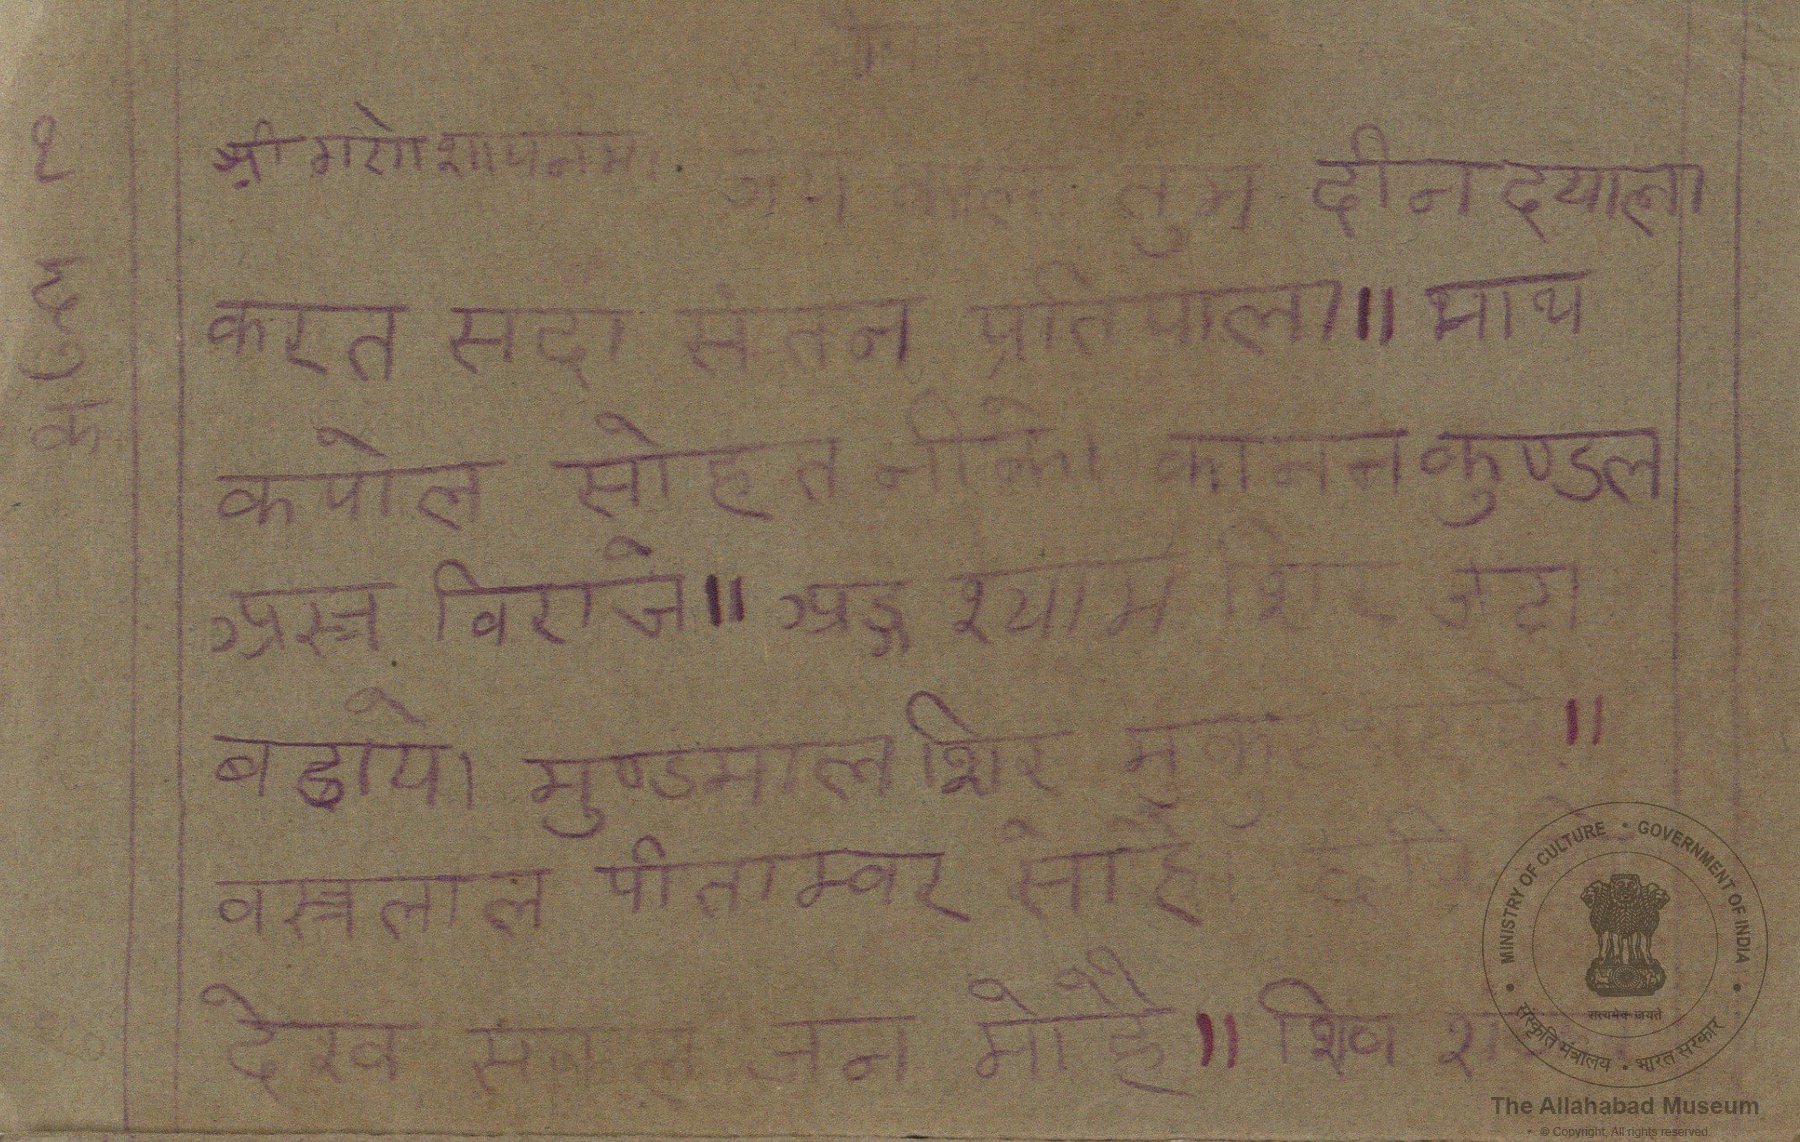 १
दु
क
श्री गणेशायनमः जय काल तुम दीन दयाला
करत सदा संतन प्रतिपाला॥ माथ
कपोल सोहत नीके। कानन कुण्डल
अस्त्र विराजे॥ अङ्ग श्याम शिर जटा
बढाये। मुण्डमाल शिर मुकुट ॥
वस्त्रलाल पीताम्वर सोहै।
देख सकल जन मोहै॥ शिव
MINISTRY OF CULTURE • GOVERNMENT OF INDIA
सत्यमेव जयते
संस्कृति मंत्रालय • भारत सरकार
The Allahabad Museum
© Copyright, All rights reserved.